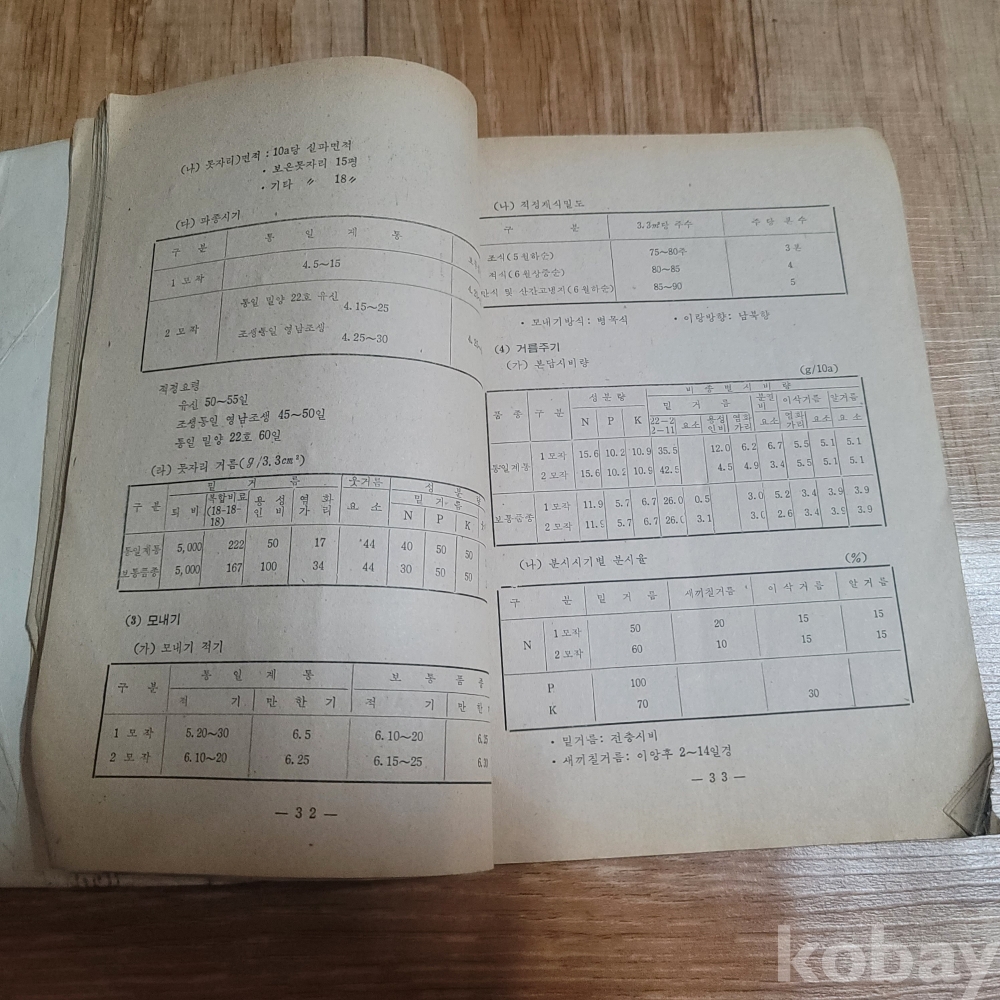 (나) 못자리)면적 : 10a당 실파면적
• 보온못자리 15평
• 기타 〃 18〃
(다) 파종시기
구 분 통 일 계 통
1 모작 4.5~15
2 모작 통일 밀양 22호 유신 4.15~25
조생통일 영남조생 4.25~30
적정요령
유신 50~55일
조생통일 영남조생 45~50일
통일 밀양 22호 60일
(라) 못자리 거름(g/3.3cm²)
밑 거 름 웃거름 성 분
구 분 퇴 비 복합비료 (18-18-18) 용 성 인 비 염 화 가 리 요 소 밑 거 름
N P K
통일계통 5,000 222 50 17 44 40 50 50
보통품종 5,000 167 100 34 44 30 50 50
(3) 모내기
(가) 모내기 적기
구 분 통 일 계 통 보 통 품 종
적 기 만 한 기 적 기 만 한
1 모 작 5.20~30 6.5 6.10~20 6.25
2 모 작 6.10~20 6.25 6.15~25
— 3 2 —
(나) 적정재식밀도
구 분 3.3㎡당 주수 주 당 본 수
조식(5월하순) 75~80주 3본
적식(6월상중순) 80~85 4
만식 및 산간고냉지(6월하순) 85~90 5
• 모내기방식: 병목식 • 이랑방향: 남북향
(4) 거름주기
(가) 본답시비량
(g/10a)
품 종 구 분 성 분 량 비 종 별 시 비 량
밑 거 름 분얼비 이삭거름 알거름
N P K 22-22-11 요소 용성인비 염화가리 요 소 염화가리 요소 요 소
통일계통 1 모작 15.6 10.2 10.9 35.5 12.0 6.2 6.7 5.5 5.1 5.1
2 모작 15.6 10.2 10.9 42.5 4.5 4.9 3.4 5.5 5.1 5.1
보통품종 1 모작 11.9 5.7 6.7 26.0 0.5 3.0 5.2 3.4 3.9 3.9
2 모작 11.9 5.7 6.7 26.0 3.1 3.0 2.6 3.4 3.9 3.9
(나) 분시시기별 분시율 (%)
구 분 밑 거 름 새끼칠거름 이 삭 거 름 알 거 름
N 1 모작 50 20 15 15
2 모작 60 10 15 15
P 100
K 70 30
• 밑거름: 전층시비
• 새끼칠거름: 이앙후 2~14일경
— 3 3 —
kobay